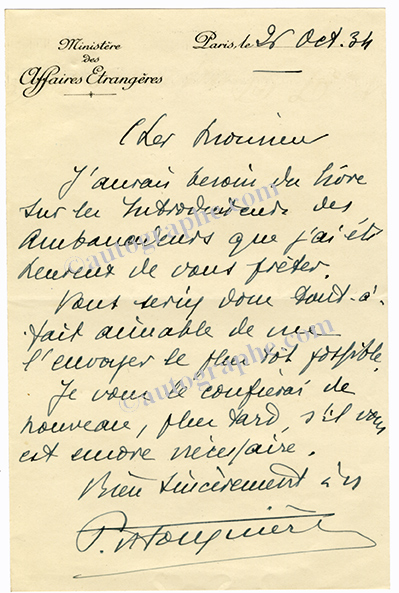 Ministère
des
Affaires Etrangères
Paris, le 26 Oct. 34
Cher Monsieur
J'aurais besoin du livre
sur les Introducteurs des
Ambassadeurs que j'ai été
heureux de vous prêter.
Vous seriez donc tout-à-
fait aimable de me
l'envoyer le plus tôt possible
Je vous le confierai de
nouveau, plus tard, s'il vous
est encore nécessaire.
Bien sincèrement à vs
P. de Fouquières
©autographe.com
©autographe.com